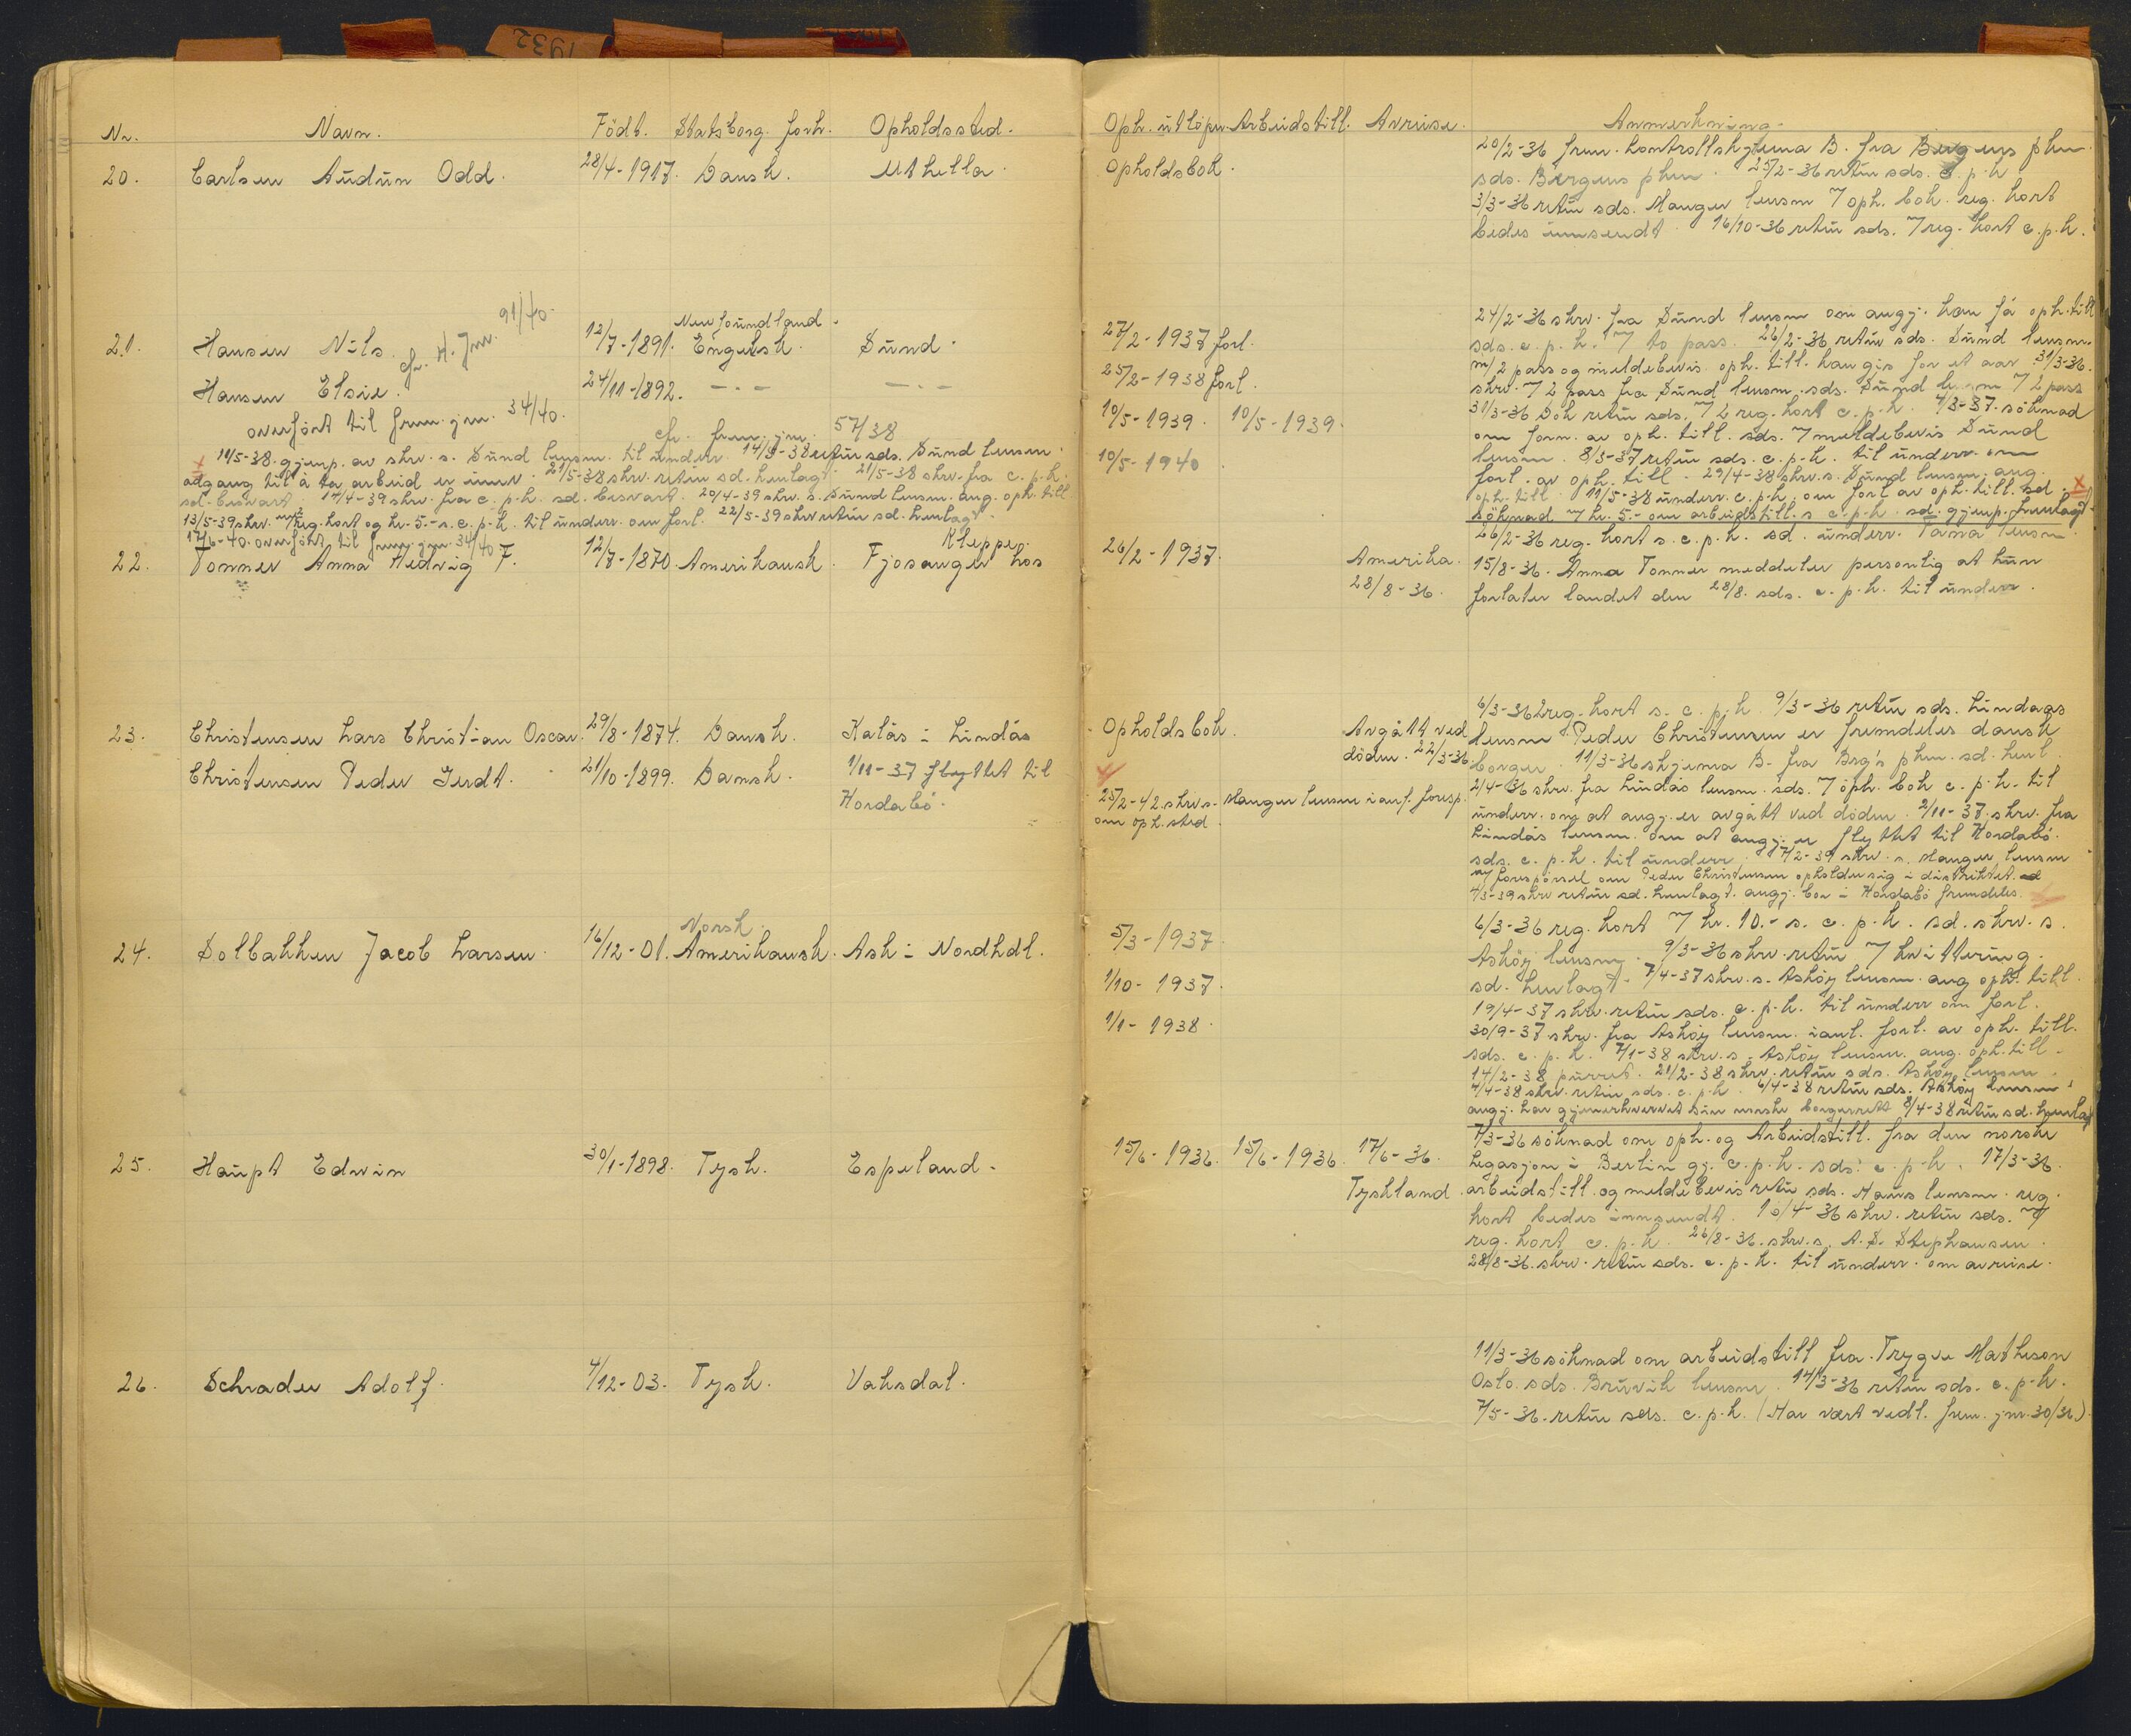 1932
Nr. Navn. Födt. Statsborg. forh. Opholdssted. Oph. utlöper. Arbeidstill. Avreise. Anmerkning.
20. Carlsen Audun Odd. 28/4-1917. Dansk. Uthella. Opholdsbok.
20/2-36 frem. kontrollskjema B. fra Bergens pkm.
sds. Bergens pkm. 25/2-36 retur sds. c.p.k.
3/3-36 retur sds. Manger lensm 7 oph. bok. reg. kort
bedes innsendt. 16/10-36 retur sds. 7 reg. kort c.p.k.
21. Hansen Nils. cfr. H. Jnr. 91/40. 12/7-1891. New foundland. Engelsk. Sund. 27/2-1937 forl.
Hansen Elsie. 24/11-1892. -.- -.- 25/2-1938 forl.
overfört til frem. jnr. 34/40. 10/5-1939. 10/5-1939.
cfr. frem. jnr. 57/38 10/5-1940
24/2-36 skrv. fra Sund lensm om angj. kan få oph. till
sds. c.p.k. 7 to pass. 26/2-36 retur sds. Sund lensm.
m/2 pass og meldebevis oph. till. kan gis for et aar 31/3-36.
skrv. 7 2 pass fra Sund lensm. sds. Sund lensm 7 2 pass
31/3-36 Dok retur sds. 7 2 reg. kort c.p.k. 4/3-37. söknad
om forn. av oph. till. sds. 7 meldebevis Sund
lensm. 8/3-37 retur sds. c.p.k. til underr. om
forl. av oph. till. 29/4-38 skrv. s. Sund lensm. ang.
oph. till. 11/5-38 underr. c.p.k. om forl av oph. till. sd. x
söknad 7 kr. 5.- om arbeidstill. s c.p.k. sd. gjenp. henlagt
x 11/5-38. gjenp. av skrv. s. Sund lensm. til underr. 14/5-38 retur sds. Sund lensm.
adgang til å ta arbeid er 21/5-38 skrv. retur sd. henlagt. 21/5-38 skrv. fra c.p.k.
sd. besvart. 17/4-39 skrv. fra c.p.k. sd. besvart. 20/4-39 skrv. s. Sund lensm. ang. oph. till.
13/5-39 skrv. m/2 reg. kort og kr. 5.- s. c.p.k. til underr. om forl. 22/5-39 skrv retur sd. henlagt.
17/6-40. overfört til frem. jnr. 34/40
22. Tonner Anna Hedvig F. 12/7-1870. Amerikansk. Fjosanger hos Kleppe. 26/2-1937. Amerika. 28/8-36.
26/2-36 reg. kort s. c.p.k. sd. underr. Fana lensm.
15/8-36. Anna Tonner meddeler personlig at hun
forlater landet den 28/8. sds. c.p.k. til underr.
23. Christensen Lars Christian Oscar. 29/8-1874. Dansk. Kalås i Lindås Opholdsbok. Avgått ved
döden. 22/3-36.
Christensen Peder Gerdt. 21/10-1899. Dansk. 1/11-37 flyttet til
Hordabö.
25/2-42 skrv s. Manger lensm i anl. foresp.
om oph. sted.
6/3-36 2 reg. kort s. c.p.k. 9/3-36 retur sds. Lindaas
lensm Peder Christensen er fremdeles dansk
borger. 11/3-36 skjema B. fra Brg's pkm. sd. henl.
2/4-36 skrv. fra Lindås lensm. sds. 7 oph. bok c.p.k. til
underr. om at angj. er avgått ved döden. 2/11-37. skrv. fra
Lindås lensm. om at angj. er flyttet til Hordabö.
sds. c.p.k. til underr. 7/2-39 skrv. s. Manger lensm
m/ forespörsel om Peder Christensen opholder sig i distriktet.
4/3-39 skrv retur sd. henlagt. angj. bor i Hordabö fremdeles.
24. Solbakken Jacob Larsen. 16/12-01. Norsk. Amerikansk. Ask i Nordhdl. 5/3-1937.
1/10-1937.
1/1-1938.
6/3-36 reg. kort 7 kr. 10.- s. c.p.k. sd. skrv. s.
Asköy lensm. 9/3-36 skrv. retur 7 kvittering.
sd. henlagt. 7/4-37 skrv. s. Asköy lensm. ang oph. till.
19/4-37 skrv. retur sds. c.p.k. til underr om forl.
30/9-37 skrv. fra Asköy lensm. i anl. forl. av oph. till.
sds. c.p.k. 7/1-38 skrv. s. Asköy lensm. ang. oph. till.
14/2-38 purret. 21/2-38 skrv. retur sds. Asköy lensm.
4/4-38 skrv. retur sds. c.p.k. 6/4-38 retur sds. Asköy lensm.
angj. har gjenerhvervet sin norske borgerrett 8/4-38 retur sd. henlagt
25. Haupt Edwin 30/1-1898. Tysk. Espeland. 15/6-1936. 15/6-1936. 17/6-36.
Tyskland.
7/3-36 söknad om oph. og Arbeidstill. fra den norske
Legasjon i Berlin gj. c.p.k. sds. c.p.k. 17/3-36.
arbeidstill. og meldebevis retur sds. Haus lensm. reg.
kort bedes innsendt. 10/4-36 skrv. retur sds. 7
reg. kort c.p.k. 26/8-36. skrv. s. A.S. Stephansen.
28/8-36. skrv. retur sds. c.p.k. til underr. om avreise.
26. Schrader Adolf. 4/12-03. Tysk. Vaksdal.
11/3-36 söknad om arbeidstill fra Trygve Matheson
Oslo. sds. Bruvik lensm. 14/3-36 retur sds. c.p.k.
7/5-36. retur sds. c.p.k. (Har vært vedl. frem. jnr. 30/36.)